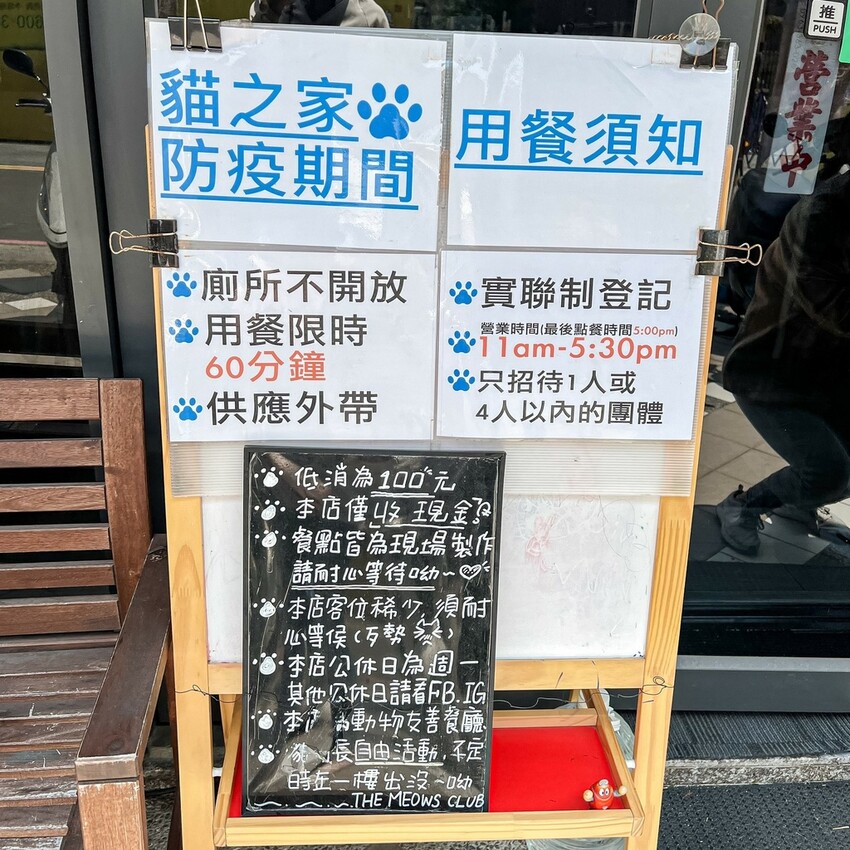 推
PUSH
營業中
貓之家
防疫期間
用餐須知
廁所不開放
用餐限時
60分鐘
供應外帶
實聯制登記
營業時間(最後點餐時間5:00pm)
11am-5:30pm
只招待1人或
4人以內的團體
低消為100元
本店僅收現金
餐點皆為現場製作
請耐心等待呦~
本店客位稀少,須耐
心等候(歹勢)
本店公休日為週一
其他公休日請看FB.IG
本店為動物友善餐廳
貓 長自由活動,不定
時在一樓出沒 呦
THE MEOWS CLUB